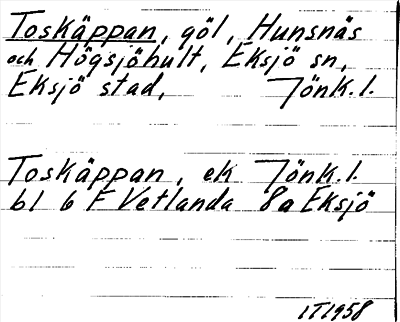 Toskäppan, göl, Hunsnäs
och Högsjöhult, Eksjö sn,
Eksjö stad, Jönk.l.
Toskäppan, ek Jönk.l.
bl 6 F Vetlanda 8a Eksjö
1T1958